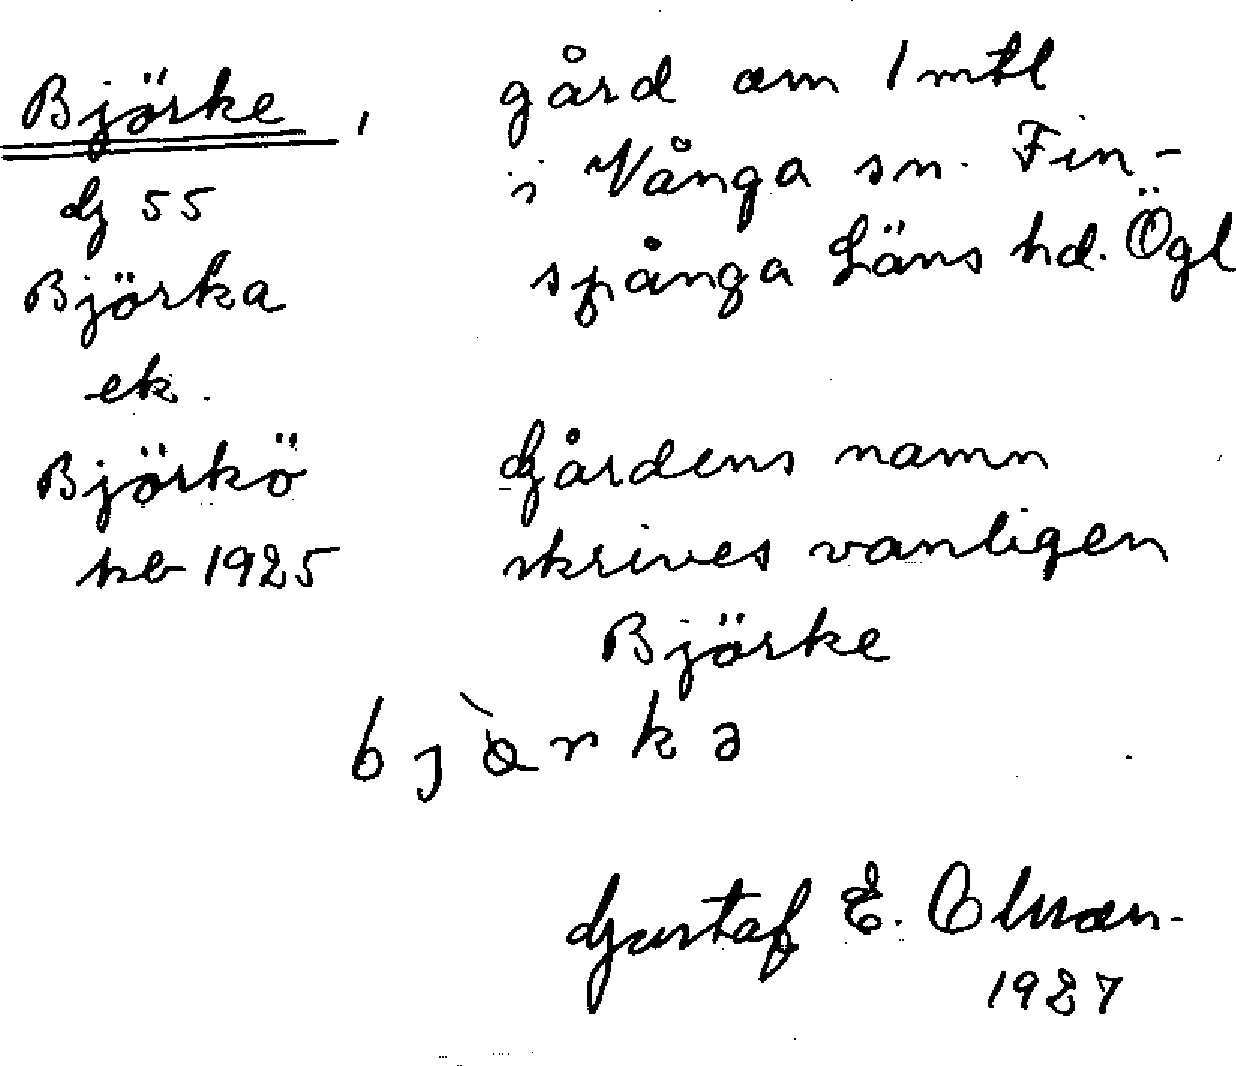 Björke, gård om 1 mtl
G 55 i Vånga sn. Fin-
Björka spånga Läns hd. Ögl
ek.
Björkö Gårdens namn
kb 1925 skrives vanligen
Björke
bjàrkə
Gustaf E. Olsson.
1927